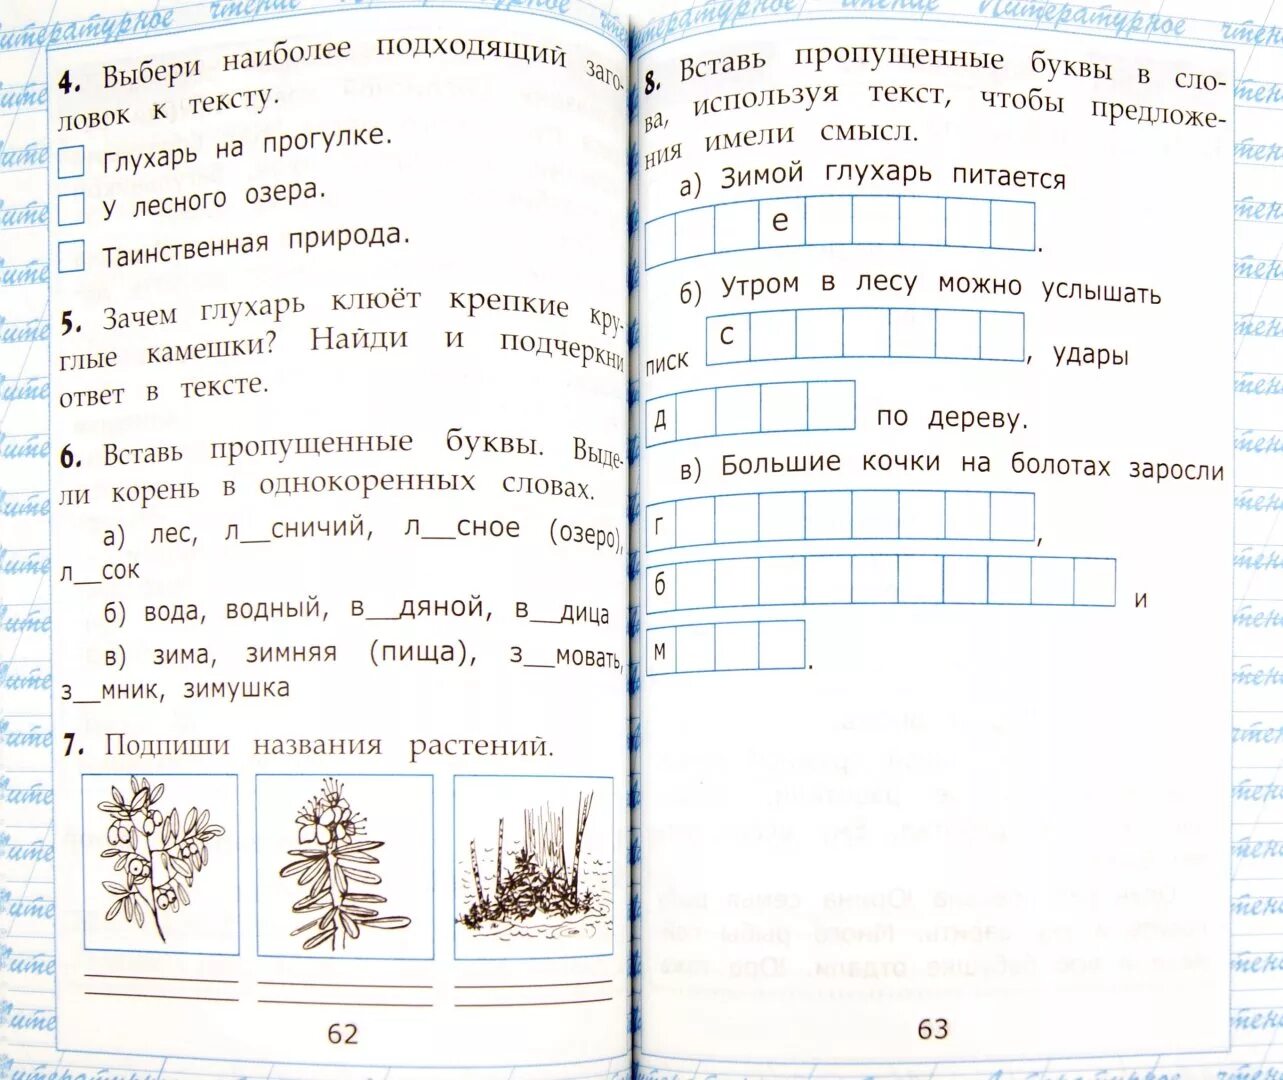 Литературное чтение Литературное
4. Выбери наиболее подходящий заго-
ловок к тексту.
Глухарь на прогулке.
У лесного озера.
Таинственная природа.
5. Зачем глухарь клюёт крепкие кру-
глые камешки? Найди и подчеркни
ответ в тексте.
6. Вставь пропущенные буквы. Выде-
ли корень в однокоренных словах.
а) лес, л__сничий, л__сное (озеро),
л__сок
б) вода, водный, в__дяной, в__дица
в) зима, зимняя (пища), з__мовать,
з__мник, зимушка
7. Подпиши названия растений.
62
8. Вставь пропущенные буквы в сло-
ва, используя текст, чтобы предложе-
ния имели смысл.
а) Зимой глухарь питается
е .
б) Утром в лесу можно услышать
писк с , удары
д по дереву.
в) Большие кочки на болотах заросли
г ,
б и
м .
63